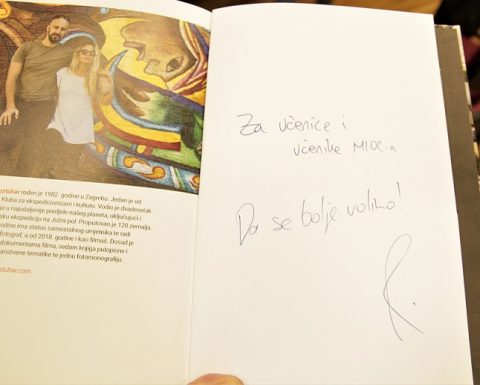 rođen je 1982. godine u Zagrebu. Jedan je od
Kluba za ekspedicionizam i kulturu. Vodio je dvadesetak
a u najudaljenije predjele našeg planeta, uključujući i
sku ekspediciju na Južni pol. Proputovao je 120 zemalja
odine ima status samostalnog umjetnika te radi
fotograf, a od 2018. godine i kao filmaš. Dosad je
dokumentarna filma, sedam knjiga putopisne i
anstvene tematike te jednu fotomonografiju.
Za učenice i
učenike MIOC-a
Da se bolje volimo!